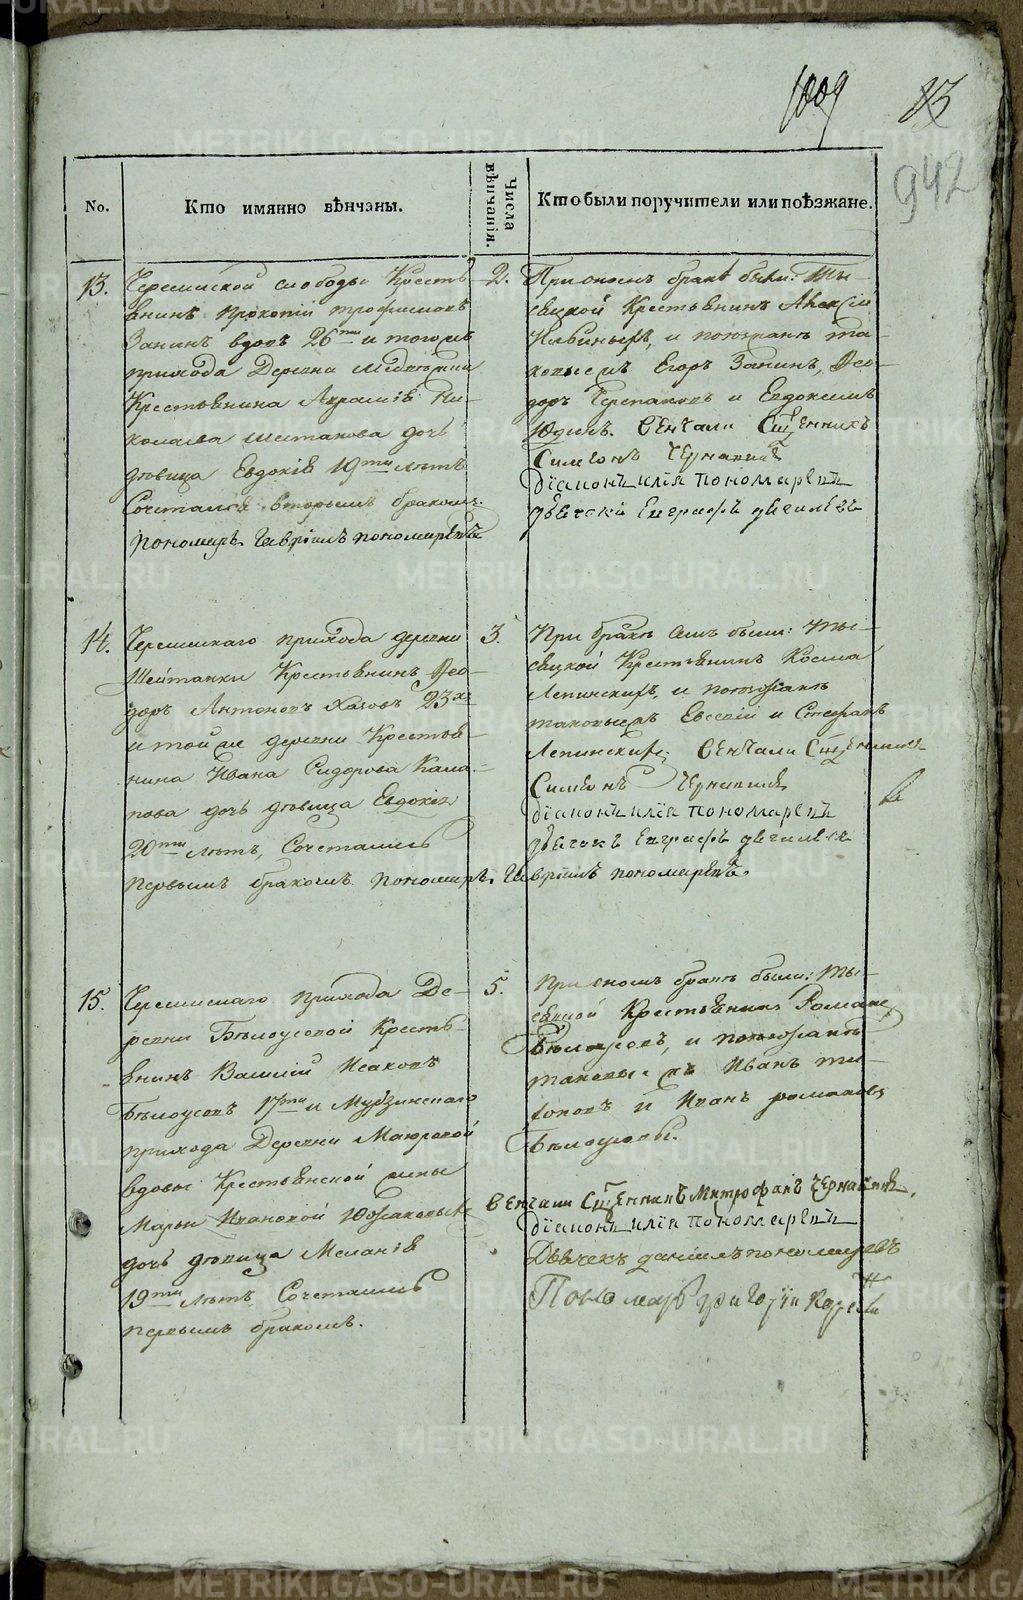 1009 83
942
No.
Кто имянно вѣнчаны.
Числа вѣнчанія.
Кто были поручители или поѣзжане.
13.
Черемиской слободы Крестья-
нинъ Прокопій Трофимовъ
Занинъ вдовъ 26ти и того жъ
прихода Деревни
Крестьянина Ни-
колаева Шестакова дочь
дѣвица Евдокія 19ти лѣтъ
Сочетался вторымъ бракомъ.
пономарь Гавріилъ пономаревъ
2.
При ономъ бракѣ были: Ты-
сяцкой Крестьянинъ Алексѣй
и поѣзжанъ та-
ковые жъ Егоръ Занинъ, Ѳео-
доръ Черепановъ и Евдокимъ
Юдинъ. вѢнчали Священникъ
Симеонъ Чернавинъ
діаконъ илія пономаревъ
дьячекъ Евграфъ
14.
Черемискаго прихода деревни
Шайтанки Крестьянинъ Ѳео-
доръ Антоновъ 23хъ
и той же деревни Крестья-
нина Ивана Сидорова
дочь дѣвица Евдокія
20ти лѣтъ, Сочетались
первымъ бракомъ. пономарь Гавріилъ пономаревъ.
3.
При бракѣ семъ были: Ты-
сяцкой Крестьянинъ Косма
Лепинскихъ, и поѣзжанѣ
таковые жъ Евсевій и Стефанъ
Лепинскихъ. вѢнчали Священникъ
Симеонъ Чернавинъ
діаконъ илія пономаревъ
дьячекъ Евграфъ
15.
Черемискаго прихода Де-
ревни Бѣлоусовой Кресть-
янинъ Василій Исаковъ
Бѣлоусовъ 17ти и Мурзинскаго
прихода Деревни Маюровой
вдовы Крестьянской жены
Марьи Ивановой
дочь дѣвица Меланія
19ти лѣтъ Сочетались
первымъ бракомъ.
5.
При ономъ бракѣ были: Ты-
сяцкой Крестьянинъ Романъ
Бѣлоусовъ, и поѣзжанѣ
таковые жъ Иванъ Ти-
товъ и Иванъ Романовъ
Бѣлоусовы.
вѢнчали Священникъ Митрофанъ Чернавинъ,
діаконъ илія пономаревъ
Дьячекъ даніилъ пономаревъ
Пономарь григорїи